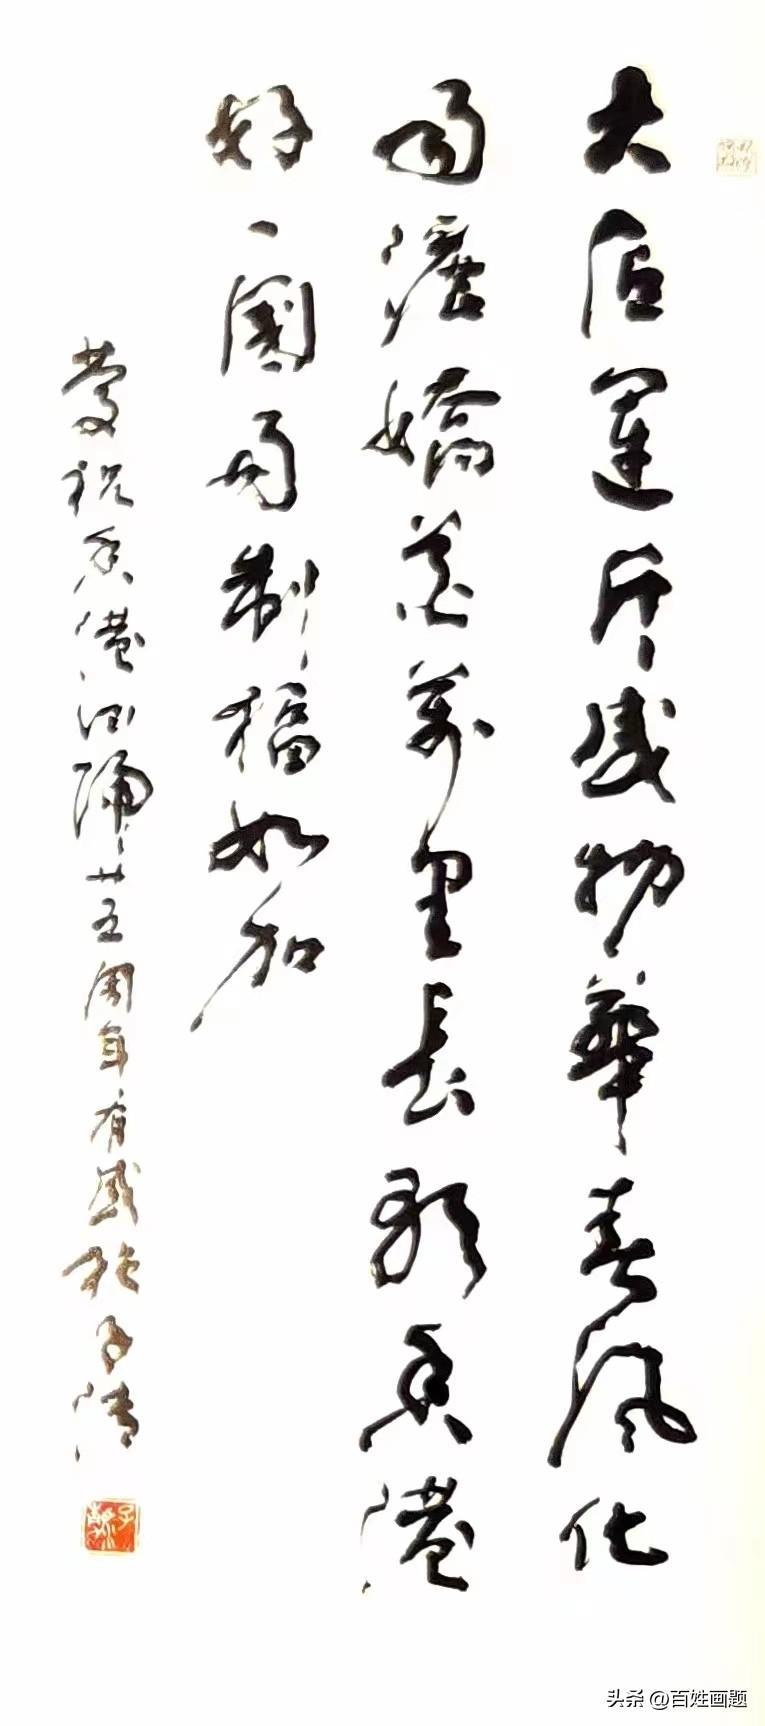 大匠運斤盛物華春風化
雨嬌花萬里長歌香港
好一國兩制福如加
慶祝香港回歸廿五周年有感施子清
头条 @百姓画题